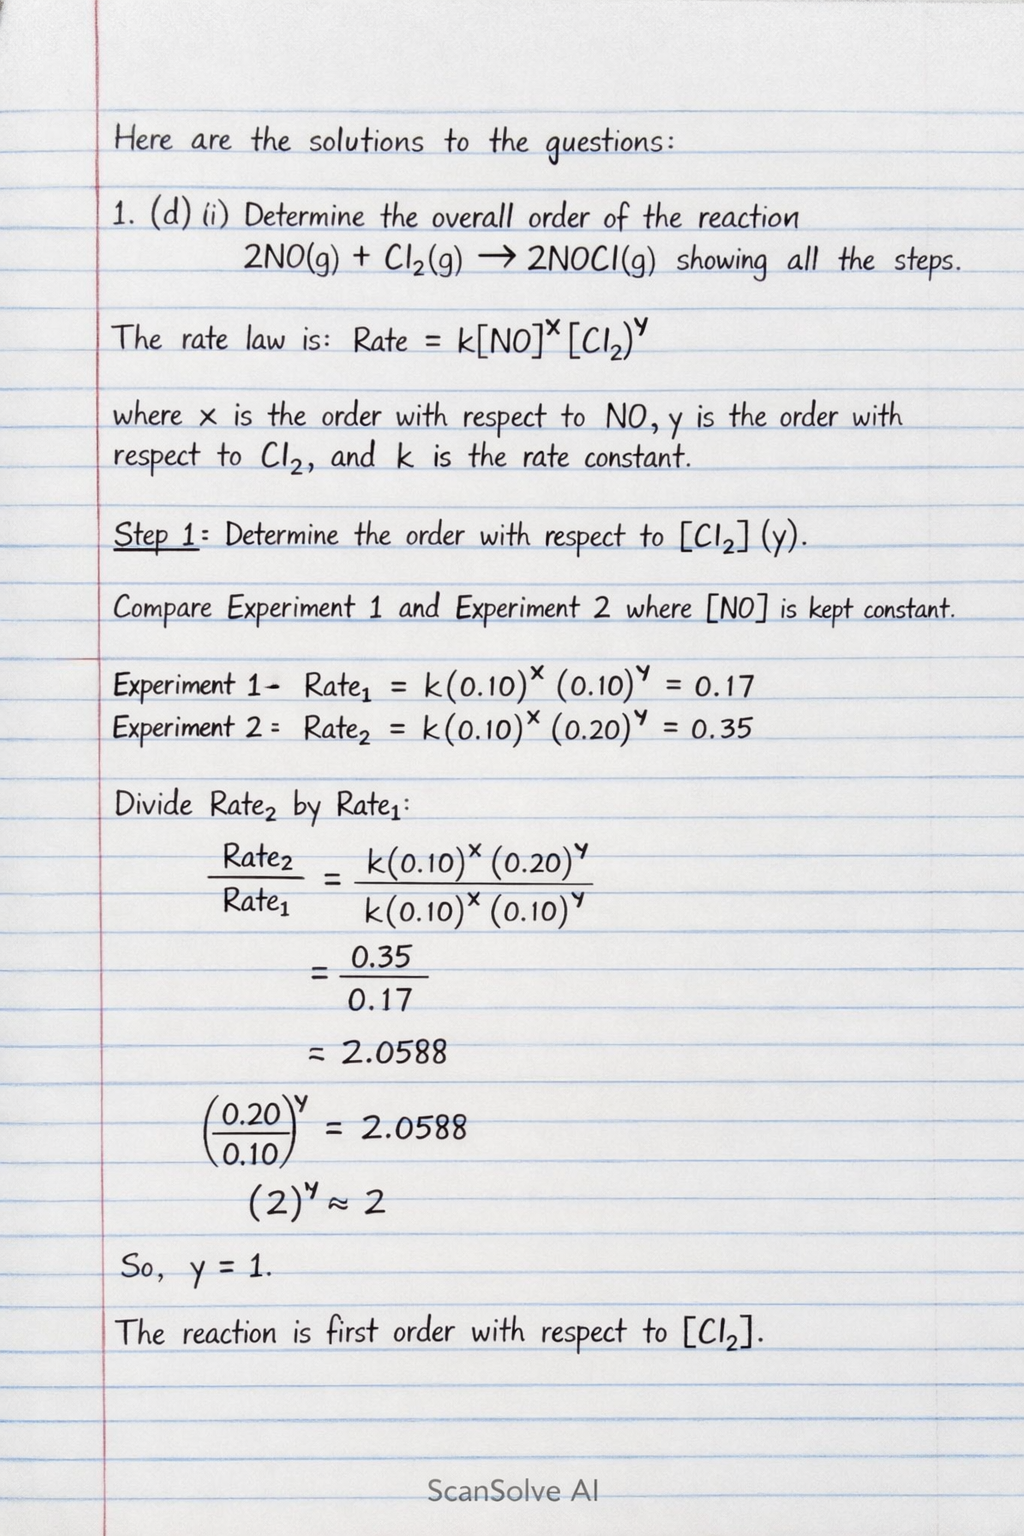 Here are the solutions to the questions:
1. (d) (i) Determine the overall order of the reaction
2NO(g) + Cl₂(g) → 2NOCl(g) showing all the steps.
The rate law is: Rate = k[NO]ˣ [Cl₂)ʸ
where x is the order with respect to NO, y is the order with
respect to Cl₂, and k is the rate constant.
Step 1: Determine the order with respect to [Cl₂] (y).
Compare Experiment 1 and Experiment 2 where [NO] is kept constant.
Experiment 1- Rate₁ = k(0.10)ˣ (0.10)ʸ = 0.17
Experiment 2 = Rate₂ = k(0.10)ˣ (0.20)ʸ = 0.35
Divide Rate₂ by Rate₁:
Rate₂ / Rate₁ = k(0.10)ˣ (0.20)ʸ / k(0.10)ˣ (0.10)ʸ
= 0.35 / 0.17
≈ 2.0588
(0.20 / 0.10)ʸ = 2.0588
(2)ʸ ≈ 2
So, y = 1.
The reaction is first order with respect to [Cl₂].
ScanSolve AI